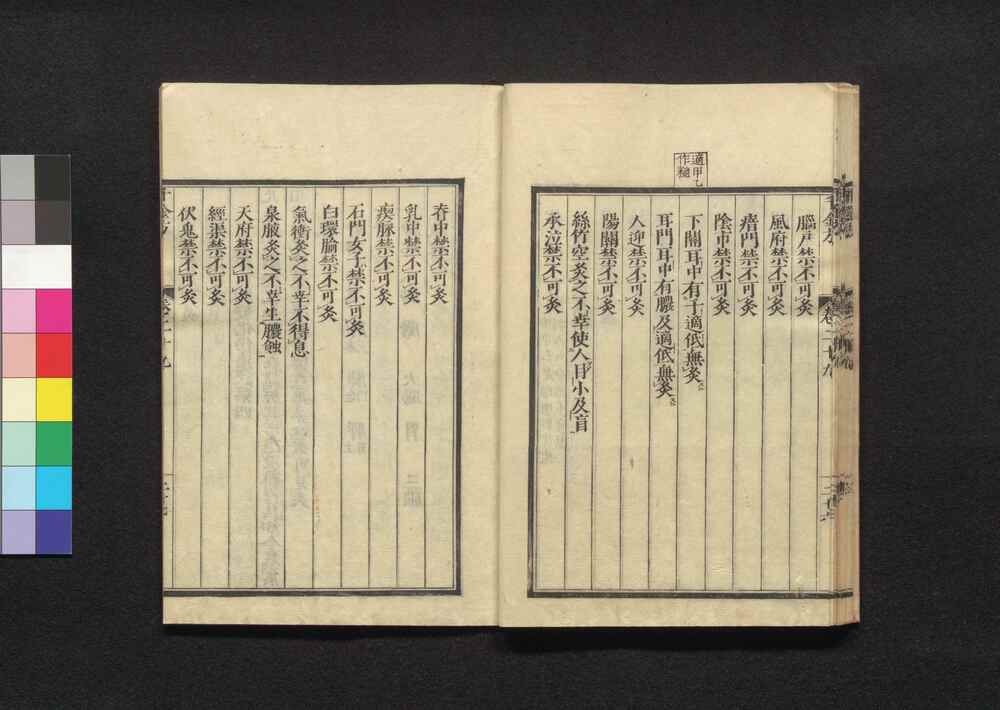 適甲乙
作𢷤
腦戸禁不可灸
風府禁不可灸
瘖門禁不可灸
陰市禁不可灸
下關耳中有干適低無灸
耳門耳中有膿及適低無灸
人迎禁不可灸
陽關禁不可灸
絲竹空灸之不幸使人目小及盲
承泣禁不可灸
脊中禁不可灸
乳中禁不可灸
瘈脉禁不可灸
石門女子禁不可灸
白環腧禁不可灸
氣衝灸之不幸不得息
泉腋灸之不幸生膿蝕
天府禁不可灸
經渠禁不可灸
伏兔禁不可灸